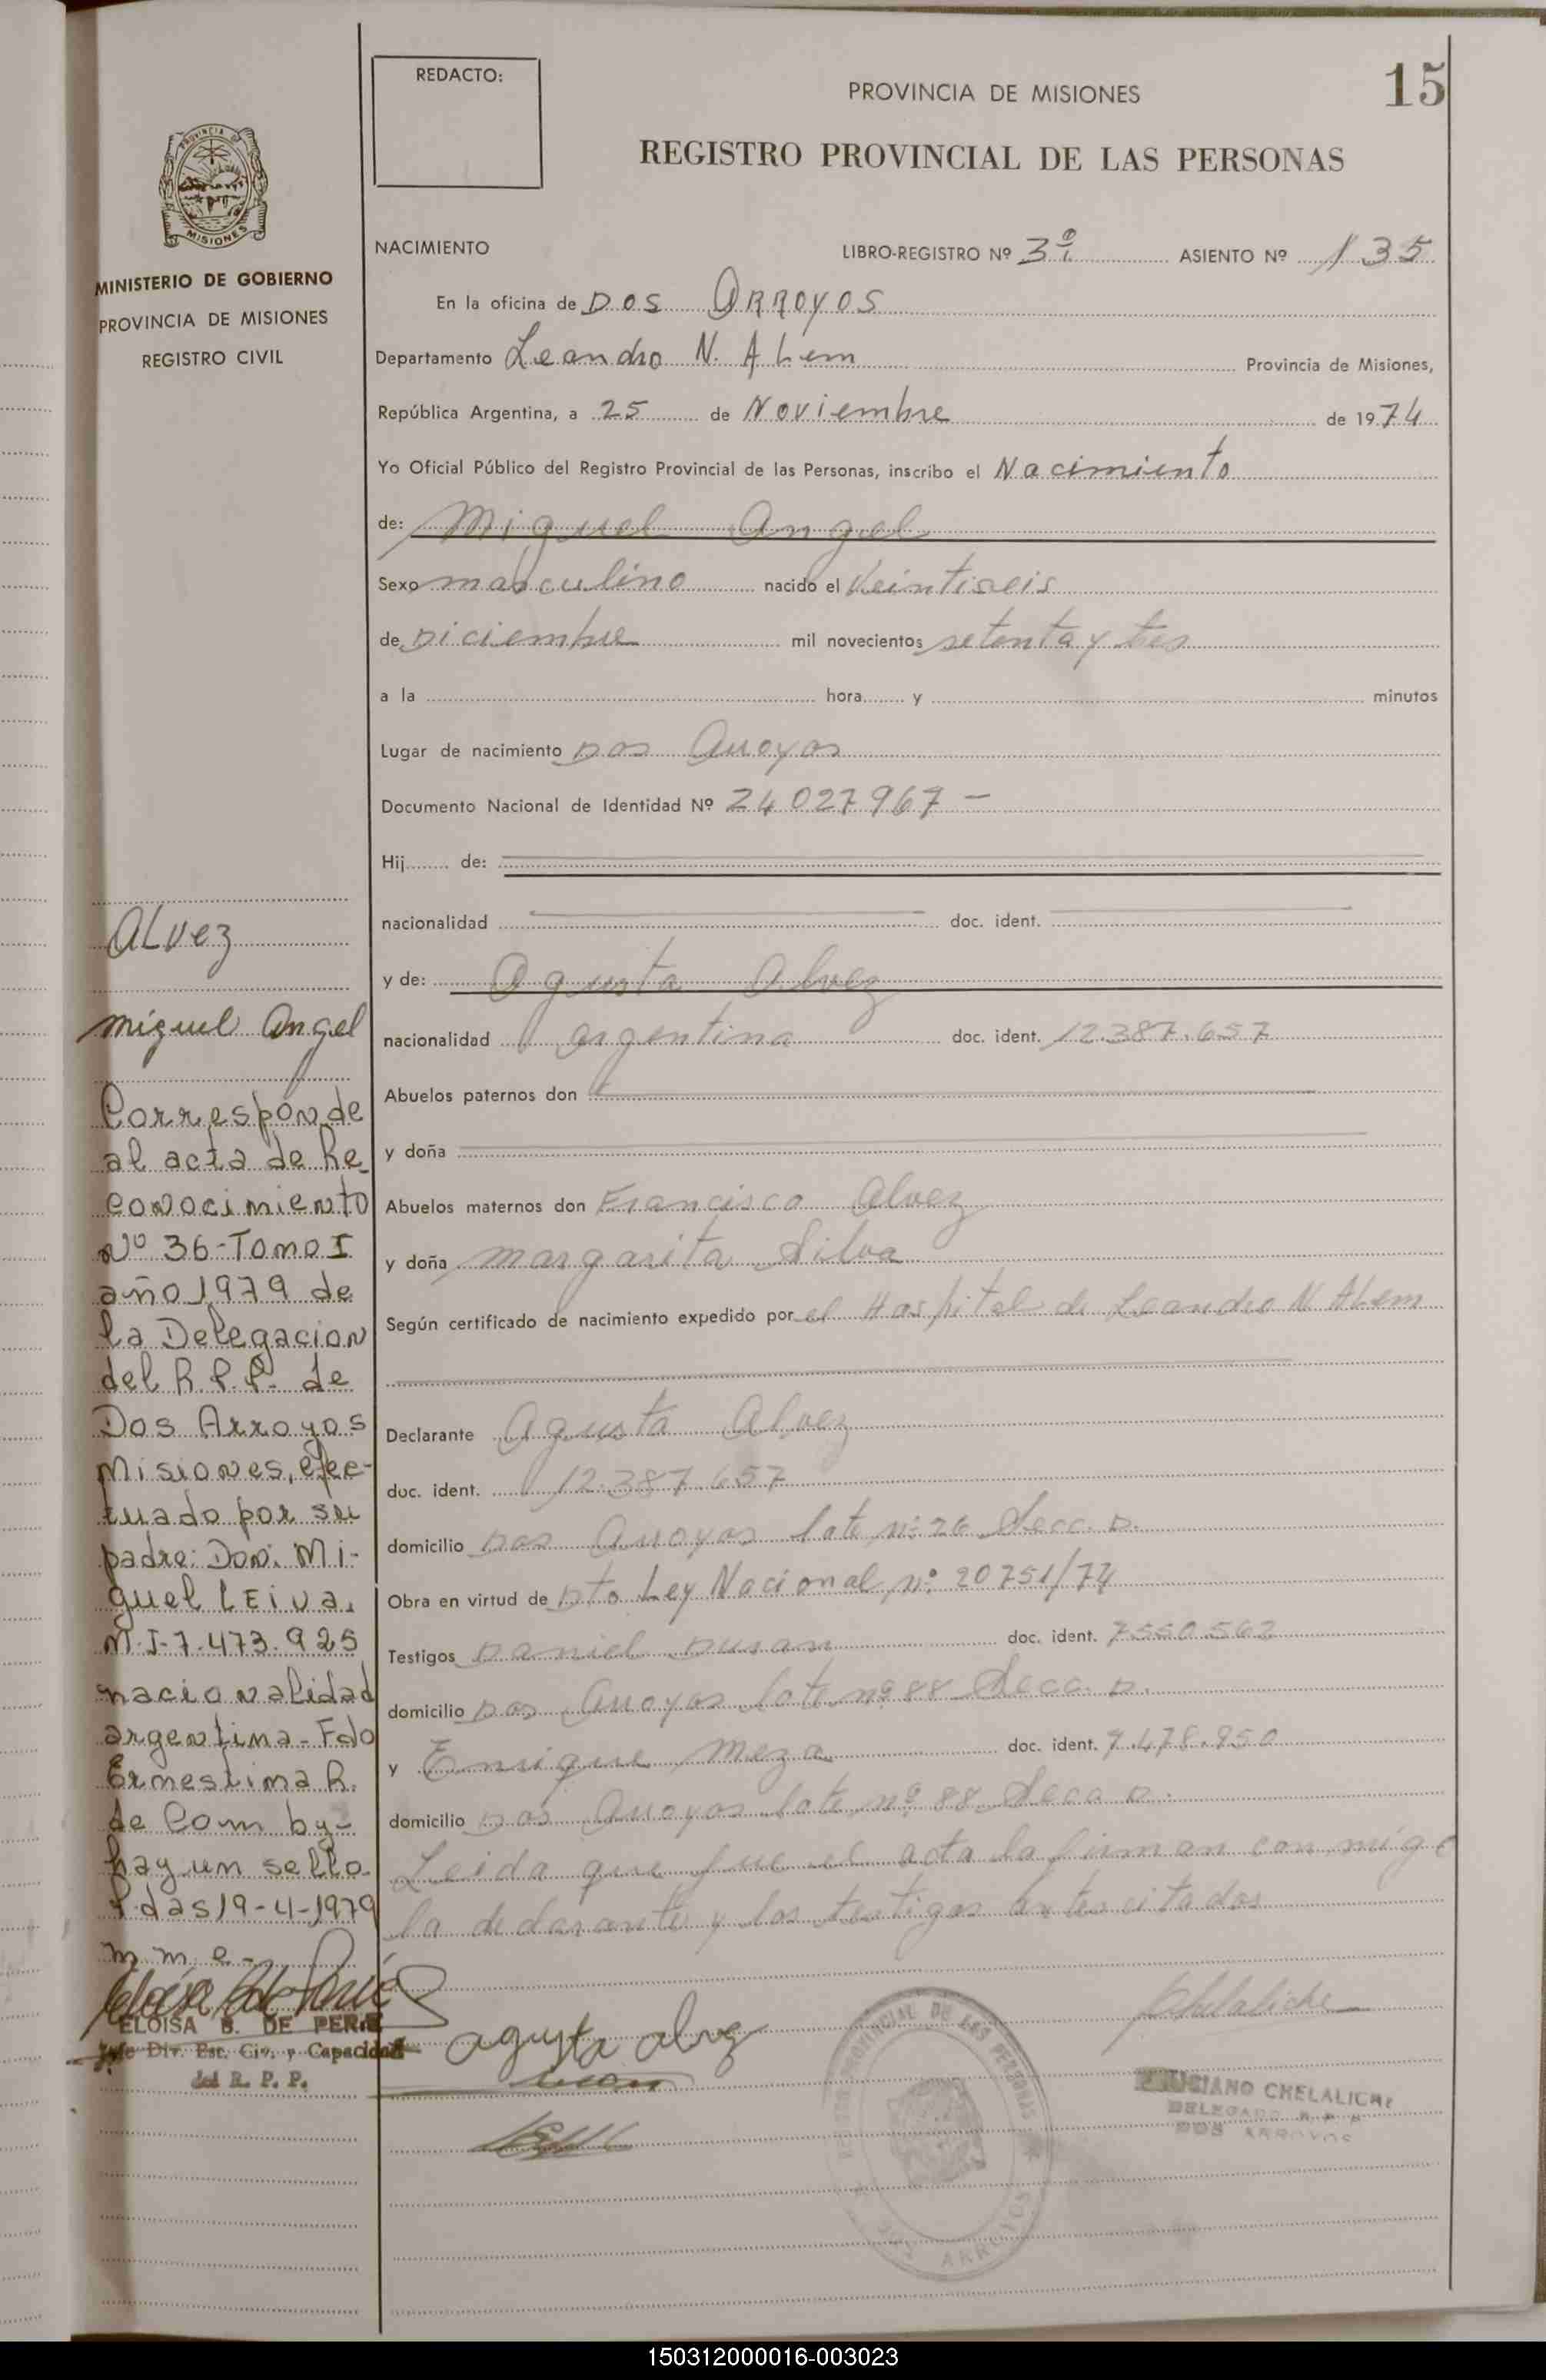 REDACTO:
PROVINCIA DE MISIONES
15
REGISTRO PROVINCIAL DE LAS PERSONAS
PROVINCIA DE
MISIONES
MINISTERIO DE GOBIERNO
PROVINCIA DE MISIONES
REGISTRO CIVIL
NACIMIENTO LIBRO-REGISTRO Nº 3º ASIENTO Nº 135
En la oficina de DOS ARROYOS
Departamento Leandro N. ALem Provincia de Misiones,
República Argentina, a 25 de Noviembre de 1974
Yo Oficial Público del Registro Provincial de las Personas, inscribo el Nacimiento
de: Miguel Angel
Sexo masculino nacido el Veintiseis
de Diciembre mil novecientos setenta y tres
a la hora y minutos
Lugar de nacimiento Dos Arroyos
Documento Nacional de Identidad Nº 24027967 —
Hij de:
nacionalidad doc. ident.
y de: Agusta Alvez
nacionalidad argentina doc. ident. 12.387.657
Abuelos paternos don
y doña
Abuelos maternos don Francisco Alvez
y doña margarita Silva
Según certificado de nacimiento expedido por el Hospital de Leandro N ALem
Declarante Agusta Alvez
doc. ident. 12.387.657
domicilio Dos Arroyos lote nº 26 Secc. D.
Obra en virtud de Dto Ley Nacional nº 20751/74
Testigos Daniel Dusan doc. ident. 7550562
domicilio Dos Arroyos lote nº 88 Secc. D.
y Enrique Meza doc. ident. 7.478.950
domicilio Dos Arroyos lote nº 88 Secc D.
Leida que fue el acta la firman con migo
la declarante y los testigos antes citados
ALvez
Miguel Angel
Corresponde
al acta de Re
conocimiento
Nº 36-Tomo I
año 1979 de
la Delegacion
del R.P.P. de
Dos Arroyos
Misiones, efec-
tuado por su
padre: Don: Mi-
guel LEiva,
M.I-7.473.925
nacionalidad
argentina-Fdo
Ernestina R.
de Com by-
hay un sello
P.das 19-4-1979
m.m.e-
ELOISA B. DE PERIE
Jefe Div. Est. Civ. y Capacidad
del R. P. P.
agusta alvez
REGISTRO PROVINCIAL DE LAS PERSONAS
DOS ARROYOS
Chelaliche
LUCIANO CHELALICHE
DELEGADO R P P
DOS ARROYOS
150312000016-003023